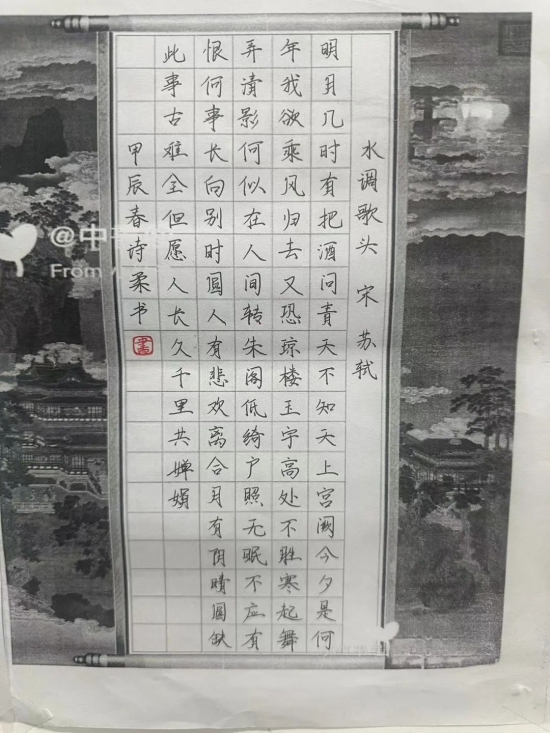 水调歌头 宋 苏轼
明月几时有把酒问青天不知天上宫阙今夕是何
年我欲乘风归去又恐琼楼玉宇高处不胜寒起舞
弄清影何似在人间转朱阁低绮户照无眠不应有
恨何事长向别时圆人有悲欢离合月有阴晴圆缺
此事古难全但愿人长久千里共婵娟
甲辰春诗柔书
@中
From